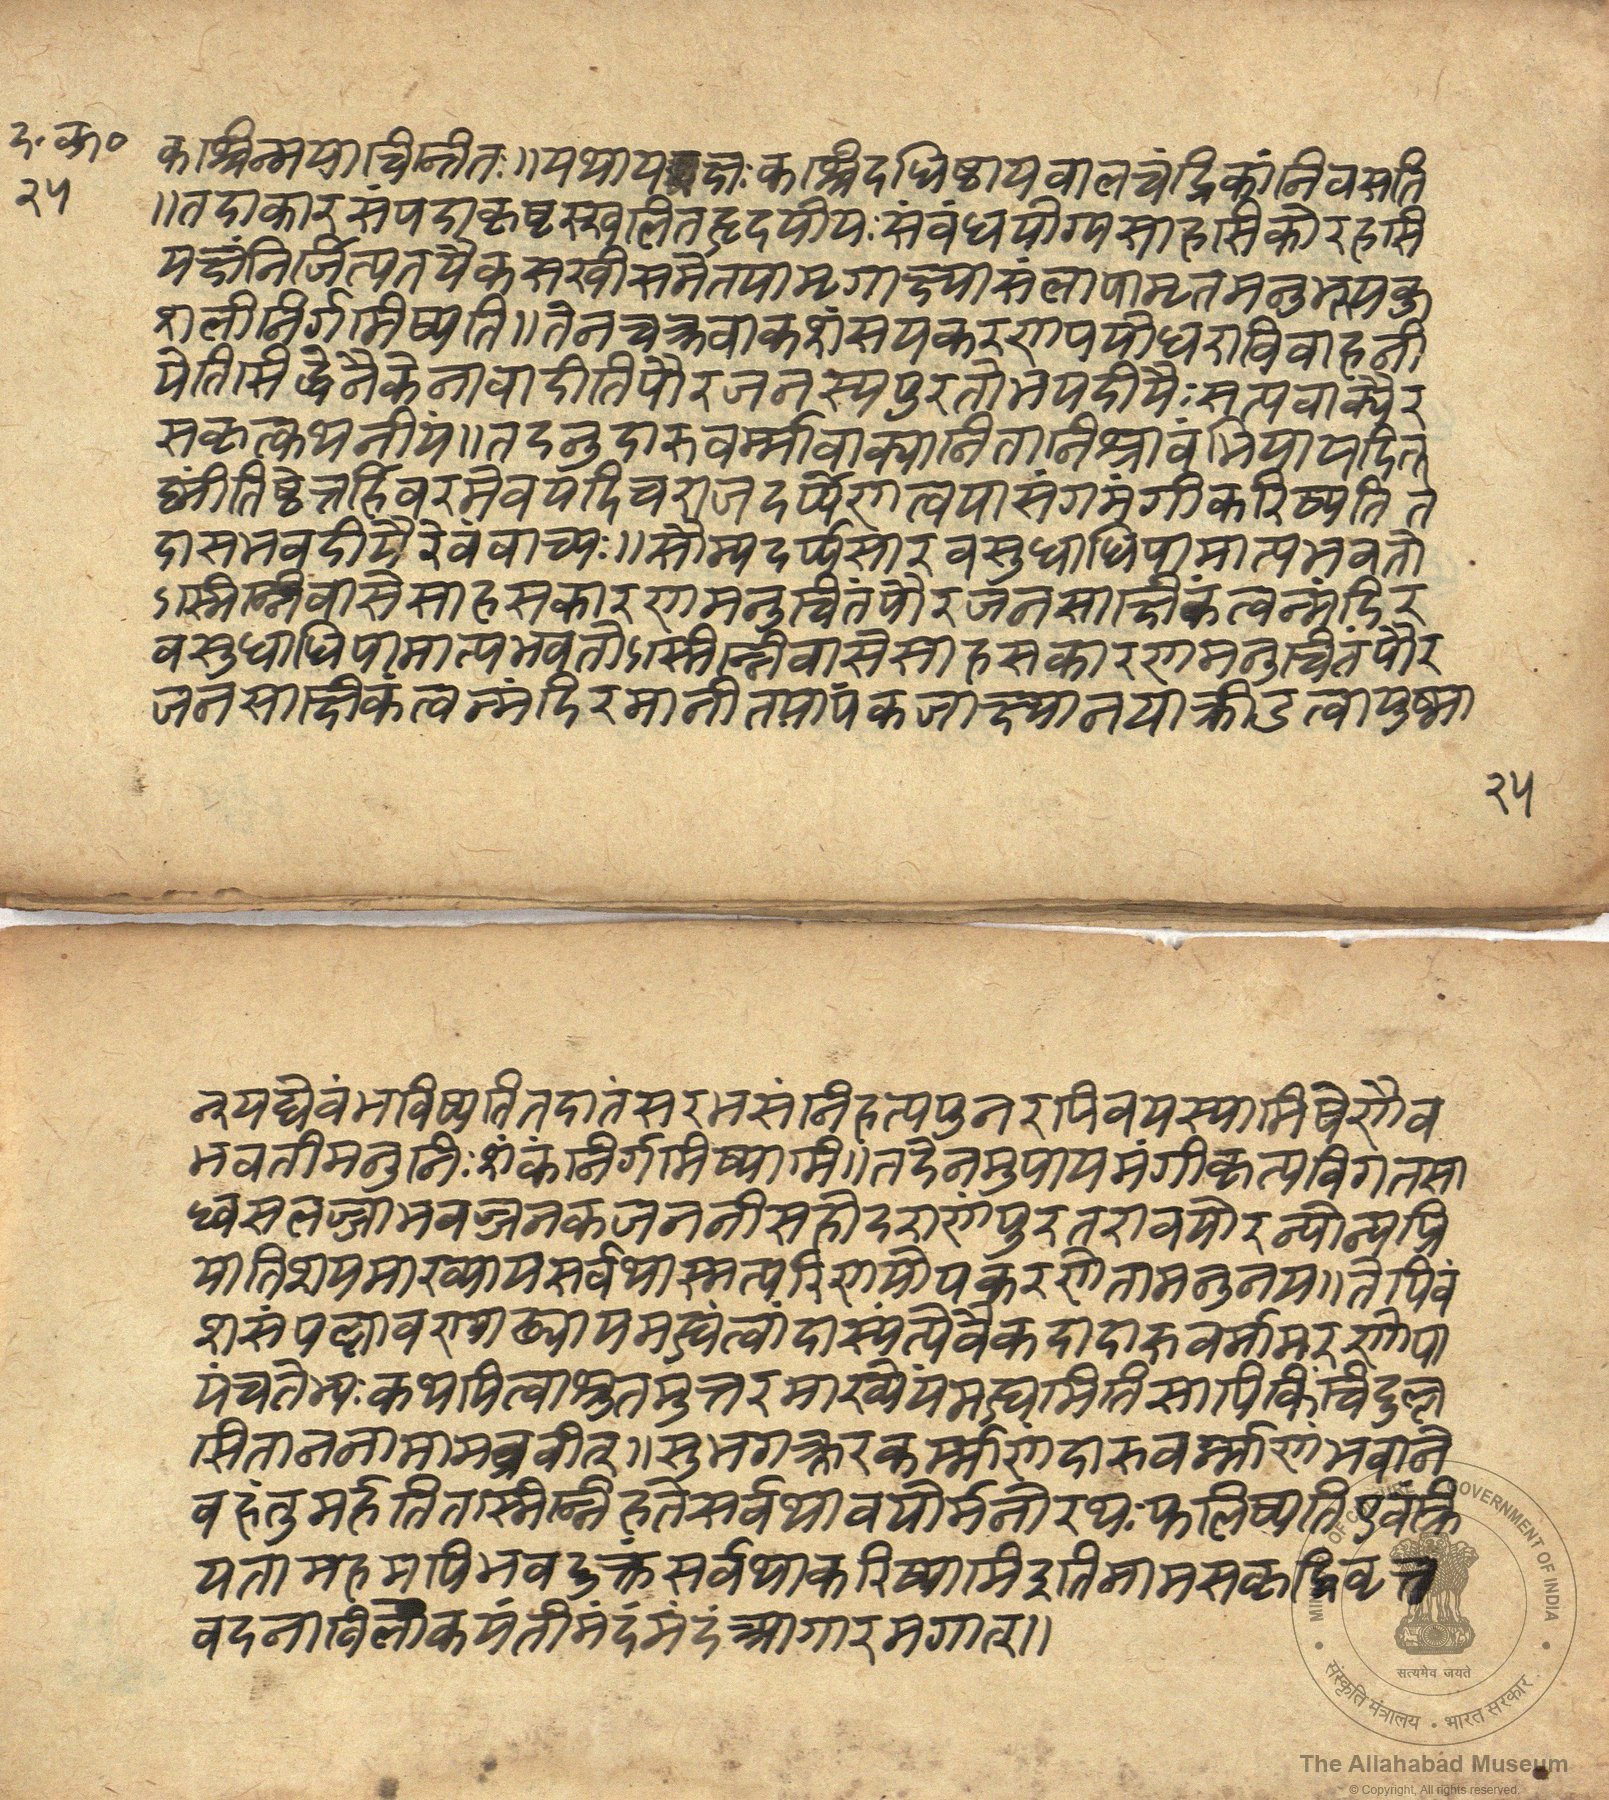 द॰ कु॰
२५
कश्चिन्मया चिन्तितः॥ यथा यक्षः कश्चिदधिष्ठाय वालचंद्रिकां निवसति
॥तदाकारसंपदाकृष्टस्खलितहृदयो यः संवंधयोग्य साहसिको रहसि
यक्षं निर्जित्य तयैकसखीसमेतया मृगाक्ष्या संलापामृतमनुभूय कु
शली निर्गमिष्यति॥ तेन चक्रवाकशंसयकरणपयोधरा विवाहनी
येति सिद्धेनैकेनावादीति पौरजनस्य पुरतो भयदीयैः सत्यवाक्यैर
सकृत्कथनीयं॥ तदनु दारुवर्म्मा वाक्यानि तानि श्रावं भिया यदि तू
ष्णीं तिष्ठेत्तर्हि वरमेव यदि च राजदर्प्पेण त्वया संगमंगीकरिष्यति त
दा स भवदीयैरेवं वाच्यः॥ सौम्य दर्प्पसारवसुधाधिपामात्य भवतो
ऽस्मिन्निवासे साहसकारणमनुचितं पौरजनसाक्षिकं त्वन्मंदिर
वसुधाधिपामात्य भवतोऽस्मिन्निवासे साहसकारणमनुचितं पौर
जनसाक्षिकं त्वन्मंदिरमानीतया पंकजाक्ष्यानया क्रीडत्वायुष्मा
२५
न् यद्येवं भविष्यति तदा तं सरभसं निहत्य पुनरपि वयस्यामिषेणैव
भवतीमनु निःशंकं निर्गमिष्यामि॥ तदेनमुपायमंगीकृत्य विगतसा
ध्वसलज्जा भवज्जनकजननीसहोदराणां पुरत रावयोरन्योन्यप्रि
यातिशयमाख्याय सर्वथास्मत्परिणयोपकरणे तामनुनय॥ ते पि वं
शसंपल्लावण्याढ्याय मह्यं त्वां दास्यंत्येवैकदा दारुवर्मामरणोपा
यं च तेभ्यः कथयित्वा श्रुतमुत्तरमाख्येयं मह्यमिति सापि किंचिदुल्ल
सितानना मामब्रवीत्॥ सुभग क्रूरकर्म्माणं दारुवर्म्माणं भवाने
व हंतुमर्हति तस्मिन्निहते सर्वथावयोर्मनोरथः फलिष्यति एवं क्रि
यतामहमपि भवदुक्तं सर्वथा करिष्यामि इति मामसकृद्विवृत्त
वदना विलोकयंती मंदं मंदं मागारमगात्॥
MINISTRY OF CULTURE GOVERNMENT OF INDIA
सत्यमेव जयते
संस्कृति मंत्रालय • भारत सरकार
The Allahabad Museum
© Copyright, All rights reserved.